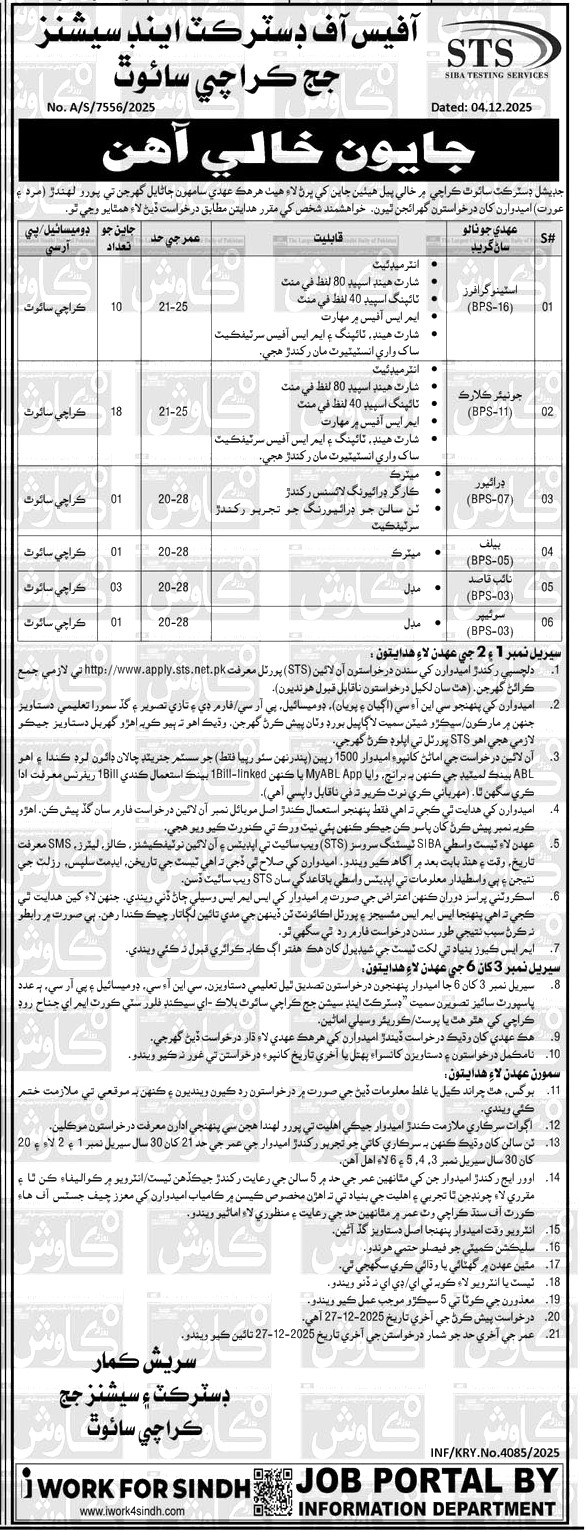 آفيس آف ڊسٽرڪٽ اينڊ سيشنز
جج ڪراچي سائوٿ
STS
SIBA TESTING SERVICES
No. A/S/7556/2025
Dated: 04.12.2025
جايون خالي آهن
جڊيشل ڊسٽرڪٽ سائوٿ ڪراچي ۾ خالي پيل هيٺين جاين کي ڀرڻ لاءِ هيٺ هرهڪ عهدي سامهون ڄاڻايل گهرجن تي پورو لهندڙ (مرد ۽
عورت) اميدوارن کان درخواستون گهرائجن ٿيون. خواهشمند شخص کي مقرر هدايتن مطابق درخواست ڏيڻ لاءِ همٿايو وڃي ٿو.
S#
عهدي جو نالو سان گريڊ
قابليت
عمر جي حد
جاين جو تعداد
ڊوميسائيل/پي آر سي
01
اسٽينوگرافرز
(BPS-16)
• انٽرميڊئيٽ
• شارٽ هينڊ اسپيڊ 80 لفظ في منٽ
• ٽائپنگ اسپيڊ 40 لفظ في منٽ
• ايم ايس آفيس ۾ مهارت
• شارٽ هينڊ، ٽائپنگ ۽ ايم ايس آفيس سرٽيفڪيٽ
ساک واري انسٽيٽيوٽ مان رکندڙ هجي.
21-25
10
ڪراچي سائوٿ
02
جونيئر ڪلارڪ
(BPS-11)
• انٽرميڊئيٽ
• شارٽ هينڊ اسپيڊ 80 لفظ في منٽ
• ٽائپنگ اسپيڊ 40 لفظ في منٽ
• ايم ايس آفيس ۾ مهارت
• شارٽ هينڊ، ٽائپنگ ۽ ايم ايس آفيس سرٽيفڪيٽ
ساک واري انسٽيٽيوٽ مان رکندڙ هجي.
21-25
18
ڪراچي سائوٿ
03
ڊرائيور
(BPS-07)
• ميٽرڪ
• ڪارگر ڊرائيونگ لائسنس رکندڙ
• ٽن سالن جو ڊرائيورنگ جو تجربو رکندڙ
سرٽيفڪيٽ
20-28
01
ڪراچي سائوٿ
04
بيلف
(BPS-05)
• ميٽرڪ
20-28
01
ڪراچي سائوٿ
05
نائب قاصد
(BPS-03)
• مڊل
20-28
03
ڪراچي سائوٿ
06
سوئيپر
(BPS-03)
• مڊل
20-28
01
ڪراچي سائوٿ
سيريل نمبر 1 ۽ 2 جي عهدن لاءِ هدايتون:
1. دلچسپي رکندڙ اميدوارن کي سندن درخواستون آن لائين (STS) پورٽل معرفت http://www.apply.sts.net.pk تي لازمي جمع
ڪرائڻ گهرجن. (هٿ سان لکيل درخواستون ناقابل قبول هونديون).
2. اميدوارن کي پنهنجو سي اين آءِ سي (اڳيان ۽ پويان)، ڊوميسائيل، پي آر سي/فارم ڊي ۽ تازي تصوير ۽ گڏ سمورا تعليمي دستاويز
جنهن ۾ مارڪون/سيڪڙو شيٽن سميت لاڳاپيل بورڊ وٽان پيش ڪرڻ گهرجن. وڌيڪ اهو ته ٻيو ڪو به اهڙو گهربل دستاويز جيڪو
لازمي هجي اهو STS پورٽل تي اپلوڊ ڪرڻ گهرجي.
3. آن لائين درخواست جي اماڻڻ کانپوءِ اميدوار 1500 رپين (پندرنهن سئو رپيا فقط) جو سسٽم جنريٽڊ چالان ڊائون لوڊ ڪندا ۽ اهو
ABL بينڪ لميٽيڊ جي ڪنهن به برانچ، وايا MyABL App يا ڪنهن 1Bill-linked بينڪ استعمال ڪندي 1Bill ريفرنس معرفت ادا
ڪري سگهن ٿا. (مهرباني ڪري نوٽ ڪريو ته في ناقابل واپسي آهي).
4. اميدوارن کي هدايت ٿي ڪجي ته اهي فقط پنهنجو استعمال ڪندڙ اصل موبائل نمبر آن لائين درخواست فارم سان گڏ پيش ڪن. اهڙو
ڪو به نمبر پيش ڪرڻ کان پاسو ڪن جيڪو ڪنهن ٻئي نيٽ ورڪ تي ڪنورٽ ڪيو ويو هجي.
5. عهدن لاءِ ٽيسٽ واسطي SIBA ٽيسٽنگ سروسز (STS) ويب سائيٽ تي اپڊيٽس ۽ آن لائين نوٽيفڪيشنز، ڪالز، ليٽرز، SMS معرفت
تاريخ، وقت ۽ هنڌ بابت بعد ۾ آگاهه ڪيو ويندو. اميدوارن کي صلاح ٿي ڏجي ته اهي ٽيسٽ جي تاريخن، ايڊمٽ سلپس، رزلٽ جي
نتيجن ۽ ٻي واسطيدار معلومات تي اپڊيٽس واسطي باقاعدگي سان STS ويب سائيٽ ڏسن.
6. اسڪروٽني پراسز دوران ڪنهن اعتراض جي صورت ۾ اميدوارن کي ايس ايم ايس وسيلي ڄاڻ ڏني ويندي. جنهن لاءِ کين هدايت ٿي
ڪجي ته اهي پنهنجا ايس ايم ايس مئسيجز ۽ پورٽل اڪائونٽ ٽن ڏينهن جي مدي تائين لڳاتار چيڪ ڪندا رهن. ٻي صورت ۾ رابطو
نه ڪرڻ سبب نتيجي طور سندن درخواست فارم رد ٿي سگهي ٿو.
7. ايم ايس ڪيوز بنياد تي لکت ٽيسٽ جي شيڊيول کان هڪ هفتو اڳ ڪا به ڪرائري قبول نه ڪئي ويندي.
سيريل نمبر 3 کان 6 جي عهدن لاءِ هدايتون:
8. سيريل نمبر 3 کان 6 جا اميدوار پنهنجون درخواستون تصديق ٿيل تعليمي دستاويزن، سي اين آءِ سي، ڊوميسائيل ۽ پي آر سي، ٻه عدد
پاسپورٽ سائيز تصويرن سميت "ڊسٽرڪٽ اينڊ سيشن جج ڪراچي سائوٿ بلاڪ -اي سيڪنڊ فلور سٽي ڪورٽ ايم اي جناح روڊ
ڪراچي کي هٿو هٿ يا پوسٽ/ڪوريئر وسيلي اماڻين.
9. هڪ عهدي کان وڌيڪ درخواست ڏيندڙ اميدوارن کي هرهڪ عهدي لاءِ ڌار درخواست ڏيڻ گهرجي.
10. نامڪمل درخواستون ۽ دستاويزن کانسواءِ پهتل يا آخري تاريخ کانپوءِ درخواستن تي غور نه ڪيو ويندو.
سمورن عهدن لاءِ هدايتون:
11. بوگس، هٿ چراند ڪيل يا غلط معلومات ڏيڻ جي صورت ۾ درخواستون رد ڪيون وينديون ۽ ڪنهن به موقعي تي ملازمت ختم
ڪئي ويندي.
12. اڳواٽ سرڪاري ملازمت ڪندڙ اميدوار جيڪي اهليت تي پورو لهندا هجن سي پنهنجي ادارن معرفت درخواستون موڪلين.
13. ٽن سالن کان وڌيڪ ڪنهن به سرڪاري کاتي جو تجربو رکندڙ اميدوار جي عمر جي حد 21 کان 30 سال سيريل نمبر 1 ۽ 2 لاءِ ۽ 20
کان 30 سال سيريل نمبر 3، 4، 5 ۽ 6 لاءِ اهل آهن.
14. اوور ايج رکندڙ اميدوار جن کي مٿانهين عمر جي حد ۾ 5 سالن جي رعايت رکندڙ جيڪڏهن ٽيسٽ/انٽرويو ۾ ڪواليفاءِ ڪن ٿا ۽
مقرري لاءِ چونڊجن ٿا تجربي ۽ اهليت جي بنياد تي ته اهڙن مخصوص ڪيسن ۾ ڪامياب اميدوارن کي معزز چيف جسٽس آف هاءِ
ڪورٽ آف سنڌ ڪراچي وٽ عمر ۾ مٿانهين حد جي رعايت ۽ منظوري لاءِ اماڻيو ويندو.
15. انٽرويو وقت اميدوار پنهنجا اصل دستاويز گڏ آڻين.
16. سليڪشن ڪميٽي جو فيصلو حتمي هوندو.
17. مٿين عهدن ۾ گهٽائي يا وڌائي ڪري سگهجي ٿي.
18. ٽيسٽ يا انٽرويو لاءِ ڪو به ٽي اي/ڊي اي نه ڏنو ويندو.
19. معذورن جي ڪوٽا تي 5 سيڪڙو موجب عمل ڪيو ويندو.
20. درخواست پيش ڪرڻ جي آخري تاريخ 27-12-2025 آهي.
21. عمر جي آخري حد جو شمار درخواستن جي آخري تاريخ 27-12-2025 تائين ڪيو ويندو.
سريش ڪمار
ڊسٽرڪٽ ۽ سيشنز جج
ڪراچي سائوٿ
INF/KRY.No.4085/2025
i WORK FOR SINDH
www.iwork4sindh.com
JOB PORTAL BY
INFORMATION DEPARTMENT